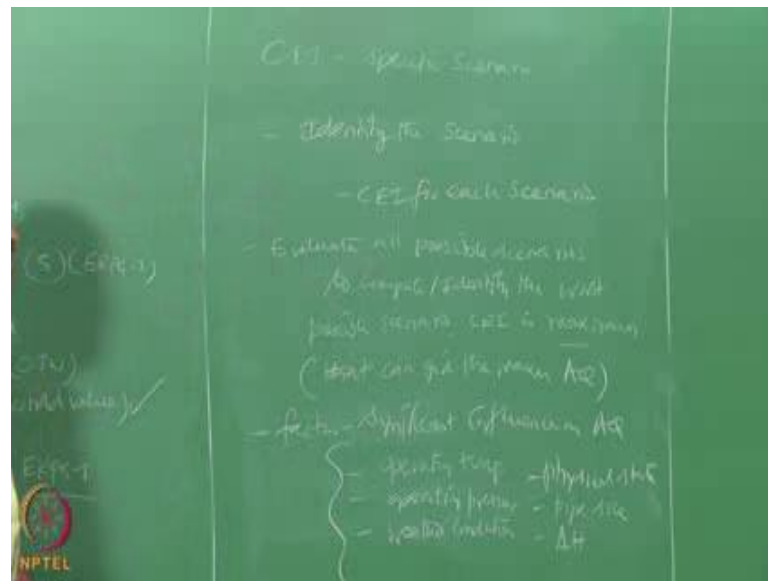 CEI - specific Scenario
- Identify the Scenario
- CEI for each Scenario
- Evaluate all possible scenarios
to compute/identify the worst
possible scenario CEI is maximum
(that can give the maxm AQ)
- factors - significant influence on AQ
- operating temp - physical state
- operating pressure - pipe size
- condition - ΔH
(S)(ERPG-2)
value) ✓
NPTEL